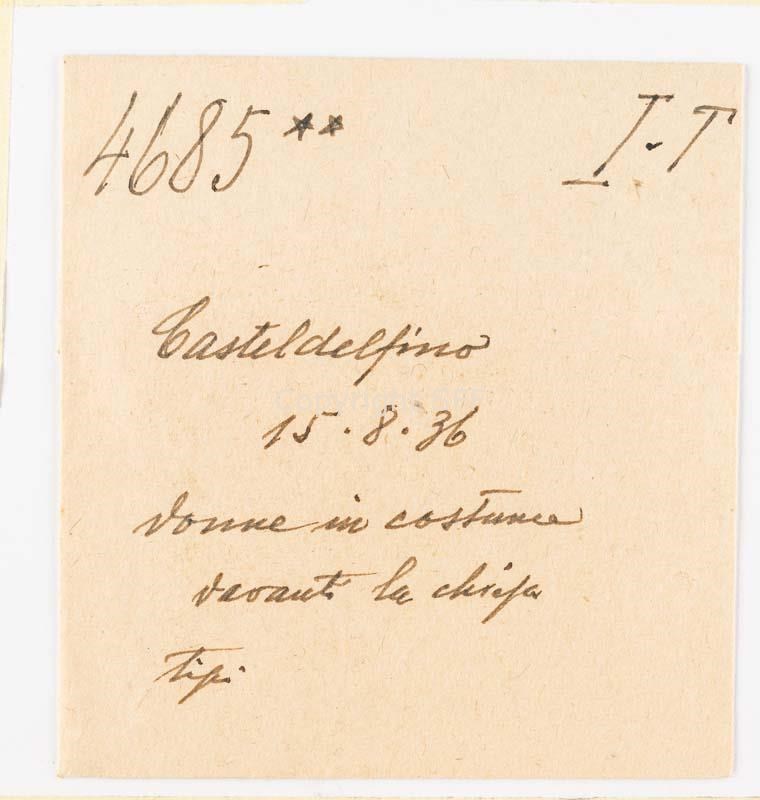 4685** I.T
Casteldelfino
15.8.36
donne in costume
davanti la chiesa
tipi